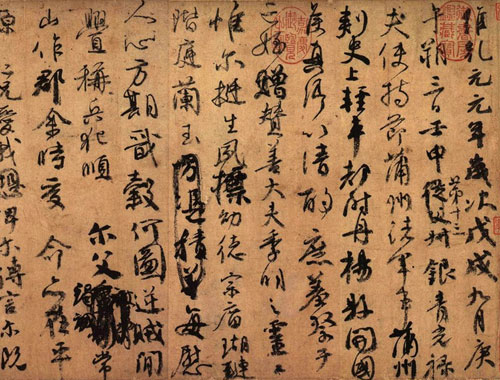 維乾元元年歲次戊戌九月庚
午朔三日壬申第十三叔銀青光祿
夫使持節蒲州諸軍事蒲州
刺史上輕車都尉丹楊縣開國
侯真卿以清酌庶羞祭于
亡姪贈贊善大夫季明之靈
惟爾挺生夙標幼德宗廟瑚璉
階庭蘭玉方憑積善每慰
人心方期戩穀何圖逆賊閒
釁稱兵犯順爾父竭誠常
山作郡余時受命亦在平
原仁兄愛我俾爾傳言爾既